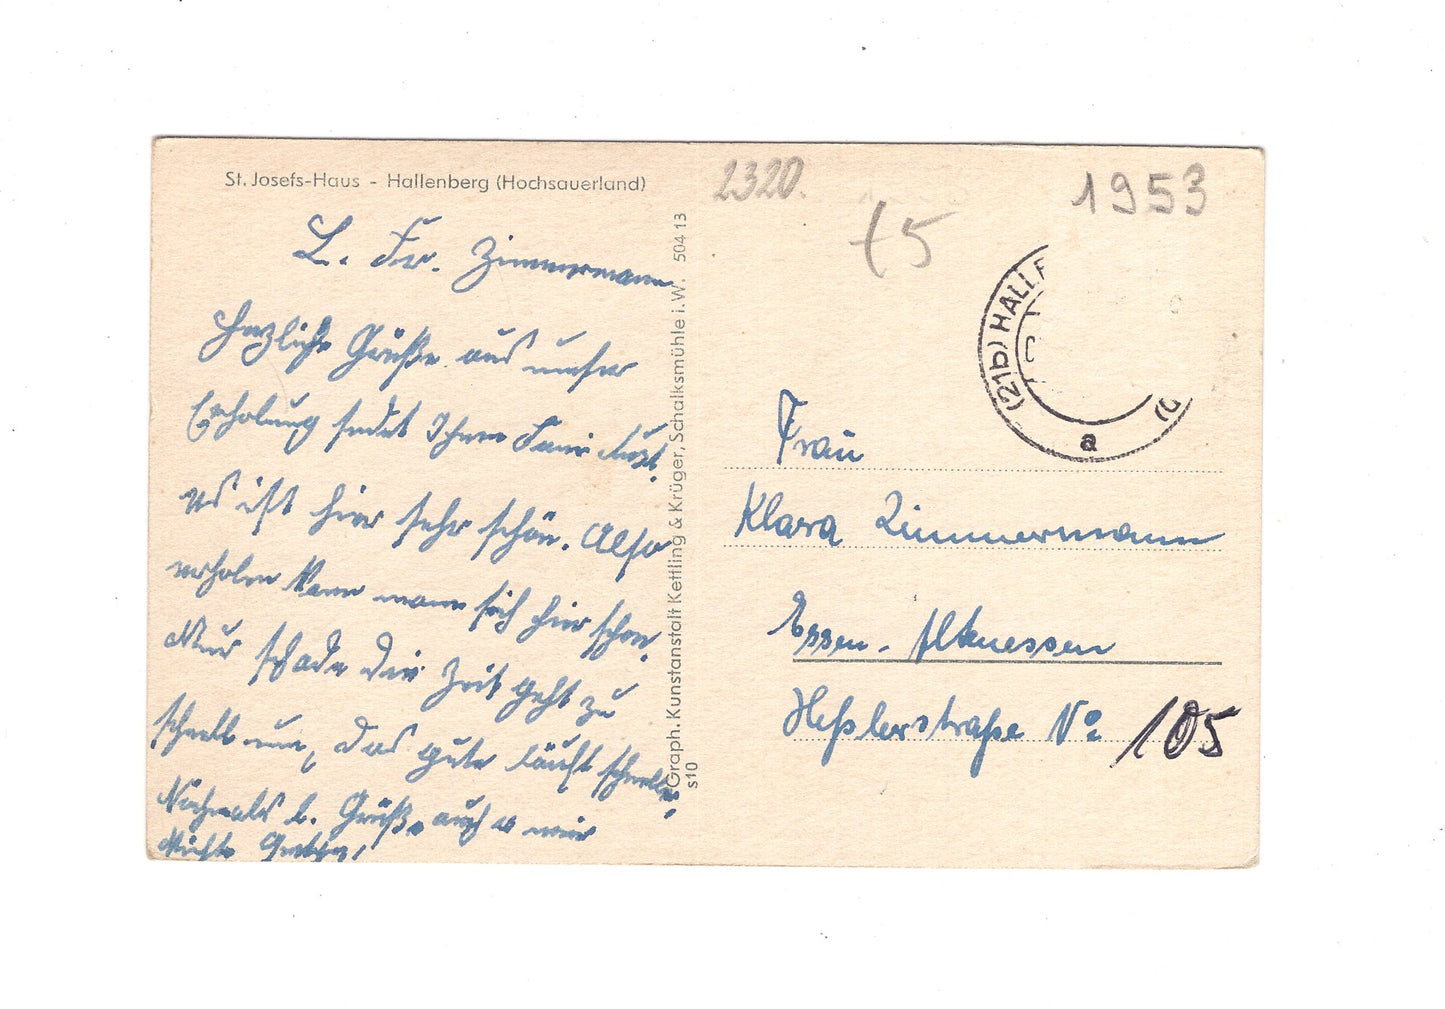 St. Josefs-Haus - Hallenberg (Hochsauerland)
L. Fr. Zimmermann
Herzliche Grüße aus unser
Erholung sendet Ihnen
es ist hier sehr schön. Also
erholen kann mann sich hier schon.
Nur schade die Zeit geht zu
schnell um, das gute läuft schneller
Nochmals h. Grüße auch v meir
Nichte
Graph. Kunstanstalt Kettling & Krüger, Schalksmühle i. W. 504 13
s10
2320.
1953
t5
(21b) HALLE
a
Frau
Klara Zimmermann
Essen-Altenessen
Heßlerstraße No 105